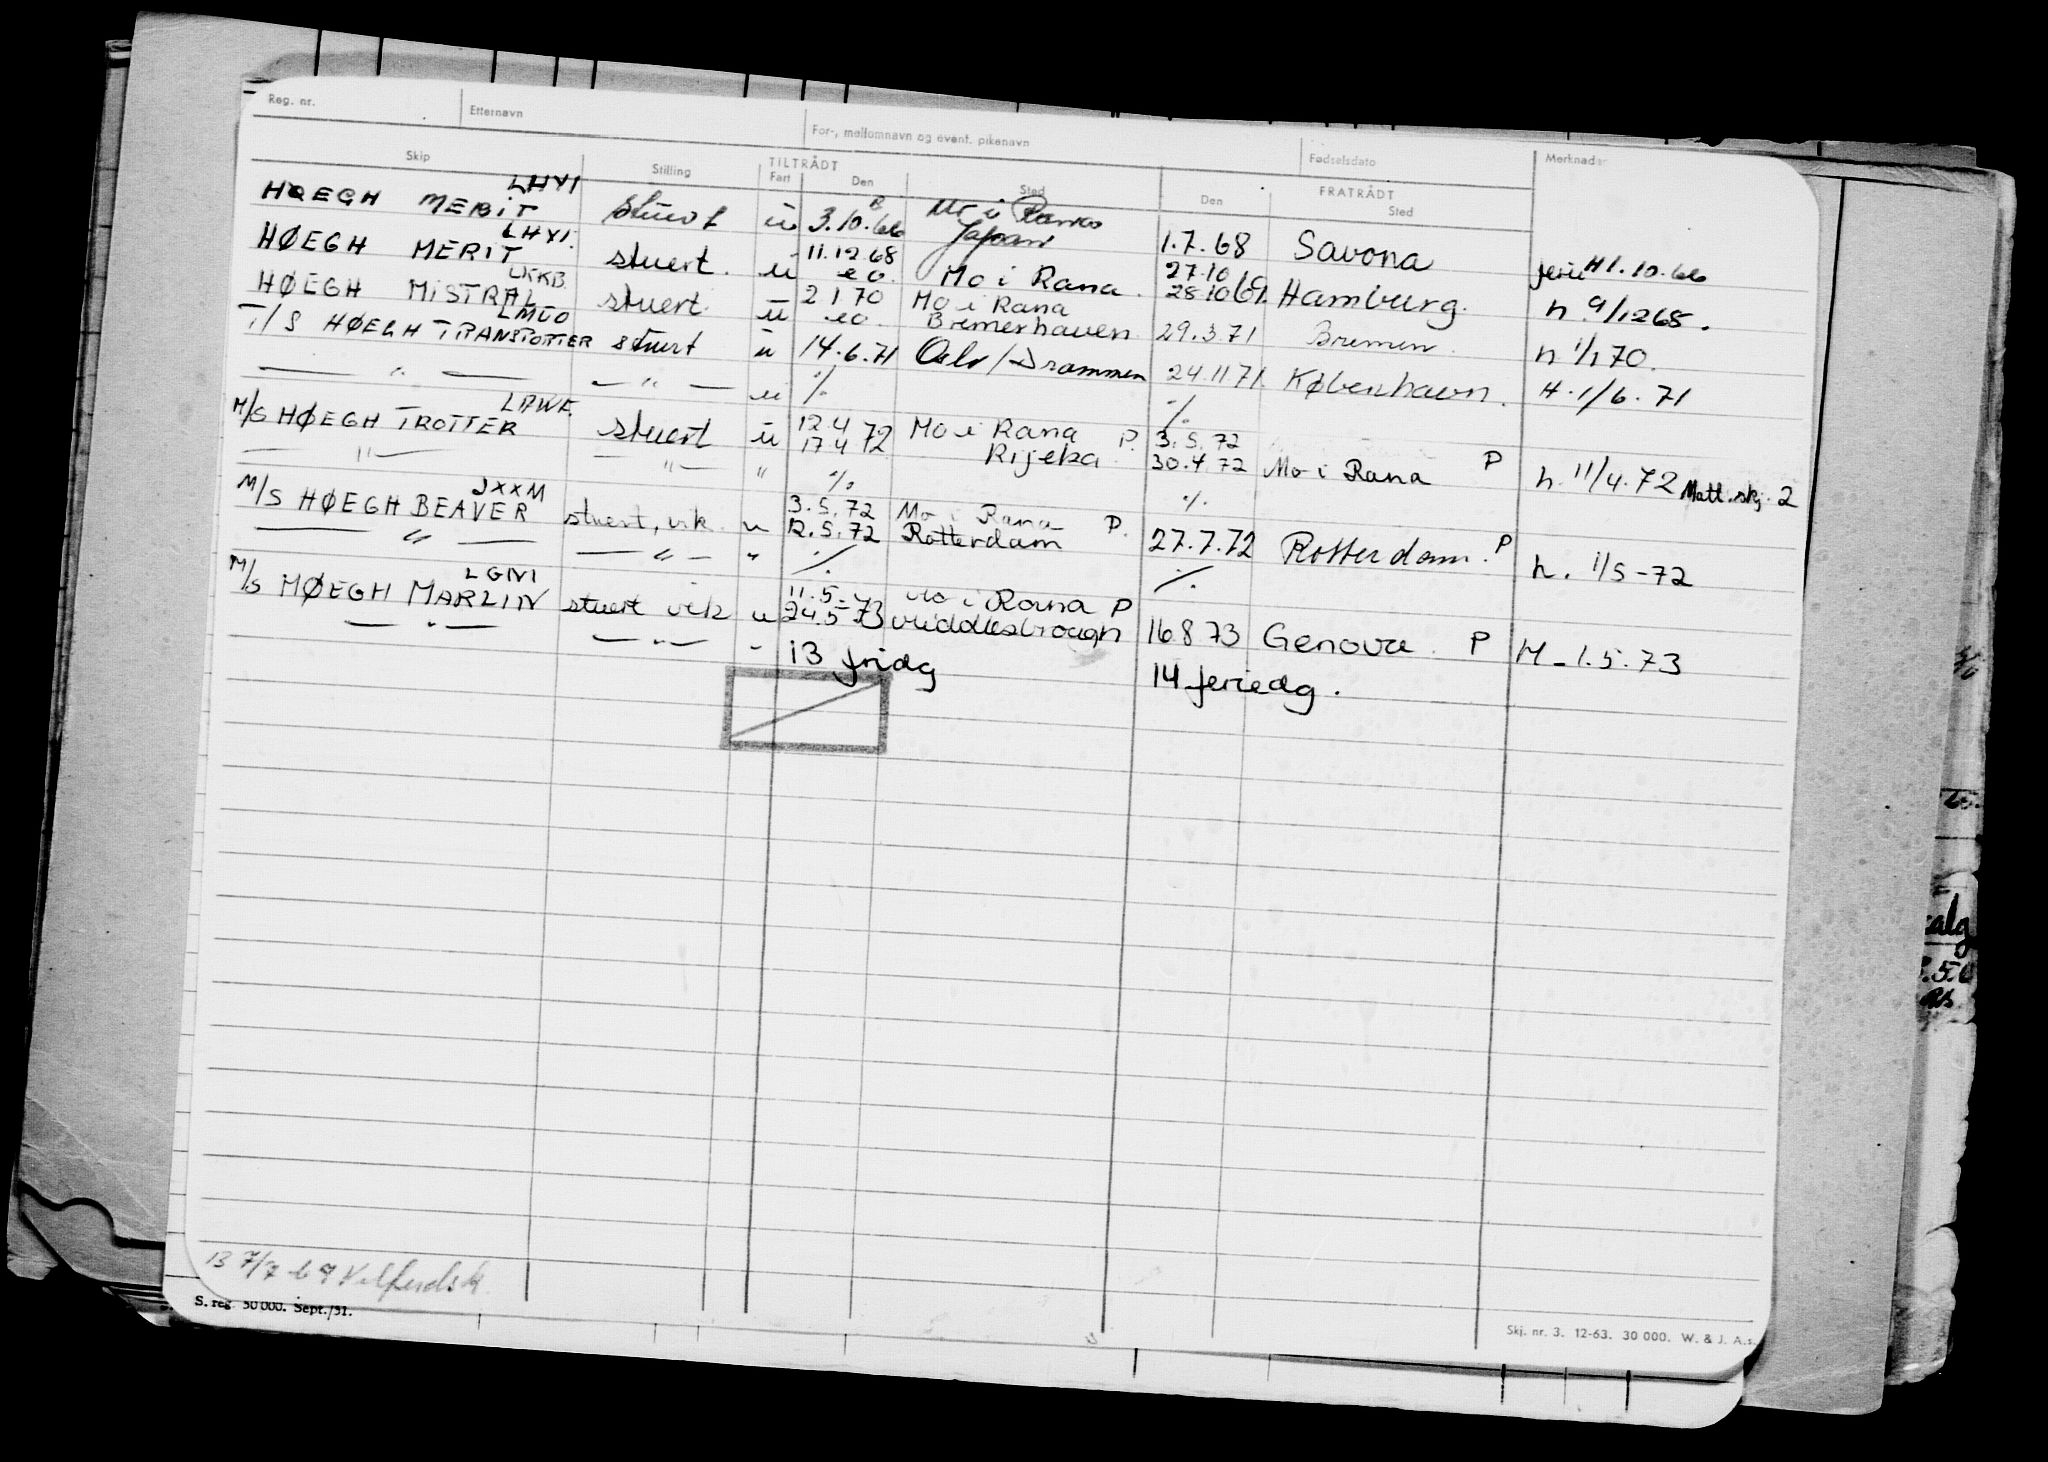 Reg. nr. Etternavn For-, mellomnavn og event. pikenavn Fødselsdato Merknader
Skip Stilling TILTRÅDT Fart Den Sted FRATRÅDT Den Sted
LHYI
HØEGH MERIT stuert u 3.10.66 Mo i Rana Japan 1.7.68 Savona ferie H 1.10.66
LHYI.
HØEGH MERIT stuert. u 11.12.68 eo. Mo i Rana. 27.10 28.10.69. Hamburg. h 9/12 68.
LKKB
HØEGH MISTRAL stuert. u 2 1.70 eo. Mo i Rana Bremerhaven 29.3.71 Bremen. h 1/1 70.
LMUO
T/S HØEGH TRANSPORTER stuert u 14.6.71 Oslo/Drammen 24.11 71. København. H. 1/6. 71
— " — — " — u ./. ./.
M/S HØEGH TROTTER stuert u 12.4 17.4 72 Mo i Rana P. Rijeka 3.5.72 30.4.72 Mo i Rana P h. 11/4.72 Matt.skj. 2
— " — — " — " ./. ./.
JXXM
M/S HØEGH BEAVER stuert, vik. u 3.5.72 12.5.72 Mo i Rana P. Rotterdam 27.7.72 Rotterdam. P h. 1/5-72
— " — — " — " ./. ./.
M/S HØEGH MARLIN stuert vik u 11.5- 24.5-73 Mo i Rana P Middlesbrough 16 8 73 Genova. P M - 1.5.73
— " — — " — " 13 fridg 14 feriedg.
13 7/7-69
S. reg. 50 000. Sept./51.
Skj. nr. 3. 12-63. 30 000. W. & J. A.s.